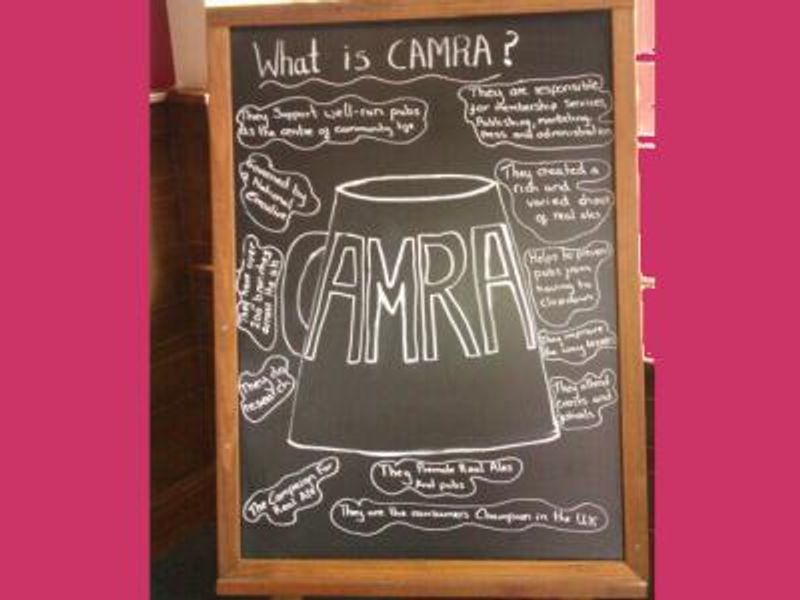 What is CAMRA?
They Support well-run pubs
as the centre of community life
They are responsible
for membership services,
Publishing, marketing,
press and administration
Governed by
a National
Executive
They created a
rich and
varied choice
of real ales
CAMRA
They have over
200 branches
across the UK
Helps to prevent
pubs from
having to
close down
They improve
the way
They do
research
They attend
events and
festivals
They Promote Real Ales
And pubs
The Campaign For
Real Ale
They are the consumers Champion in the UK